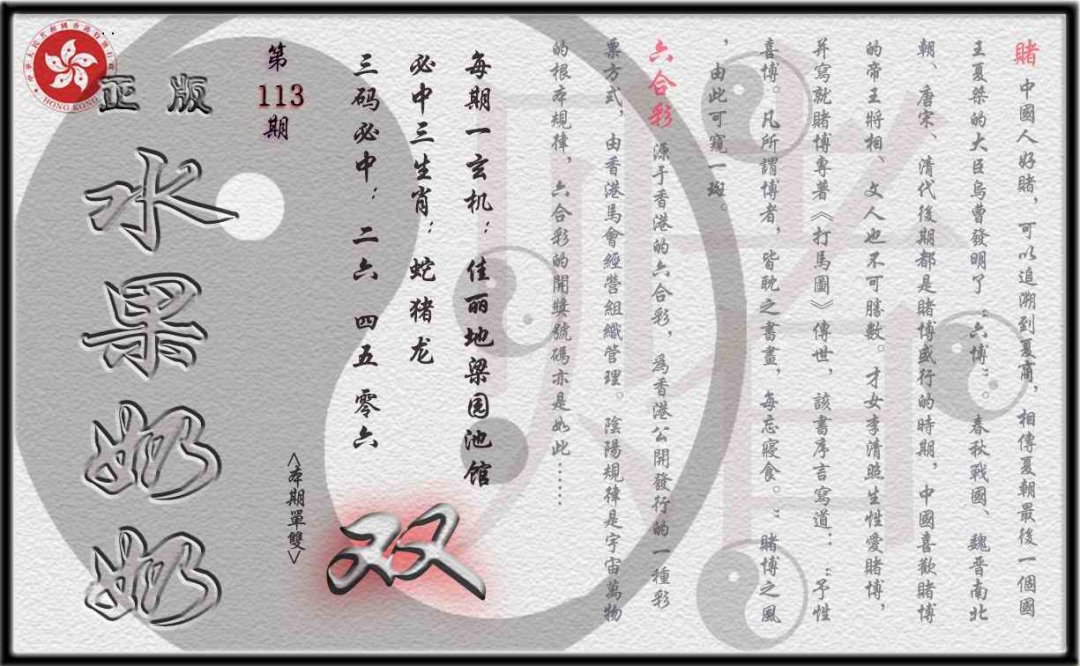 賭 中國人好賭，可以追溯到夏商，相傳夏朝最後一個國
王夏桀的大臣烏曹發明了“六博”。春秋戰國、魏晋南北
朝、唐宋、清代後期都是賭博盛行的時期，中國喜歡賭博
的帝王將相、文人也不可勝數。才女李清照生性愛賭博，
并寫就賭博專著《打馬圖》傳世，該書序言寫道：“予性
喜博。凡所謂博者，皆耽之書畫，每忘寢食。”賭博之風
，由此可窺一斑。
六合彩 源于香港的六合彩，為香港公開發行的一種彩
票方式，由香港馬會經營組織管理。陰陽規律是宇宙萬物
的根本規律，六合彩的開獎號碼亦是如此……
每期一玄机：佳丽地梁园池馆
必中三生肖：蛇猪龙
三码必中：二六 四五 零六
双
<本期單雙>
第
113
期
正版
水果奶奶
HONG KONG